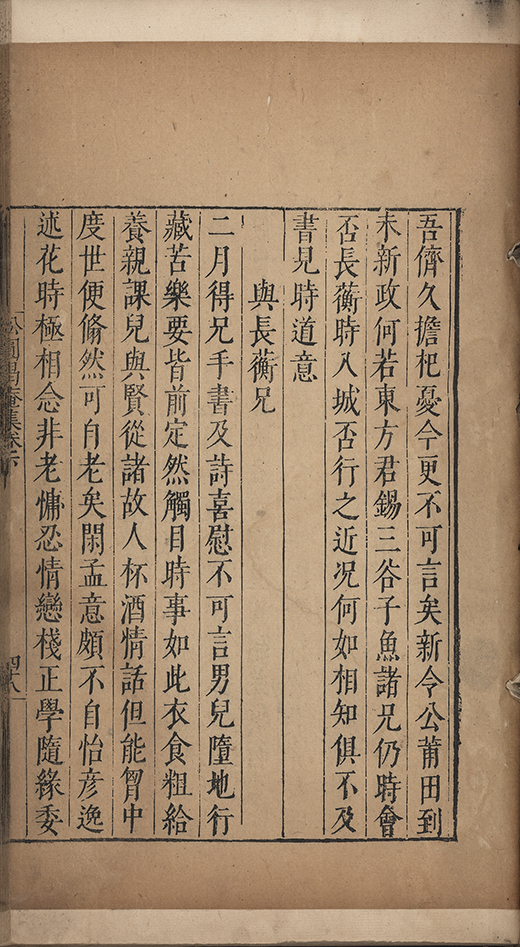 吾儕久擔杞憂今更不可言矣新令公莆田到
未新政何若東方君錫三谷子魚諸兄仍時會
否長蘅時入城否行之近况何如相知俱不及
書見時道意
與長蘅兄
二月得兄手書及詩喜慰不可言男兒墮地行
藏苦樂要皆前定然觸目時事如此衣食粗給
養親課兒與賢從諸故人杯酒情話但能胷中
度世便翛然可自老矣閑孟意頗不自怡彦逸
述花時極相念非老慵忍情戀棧正學隨緣委
四八